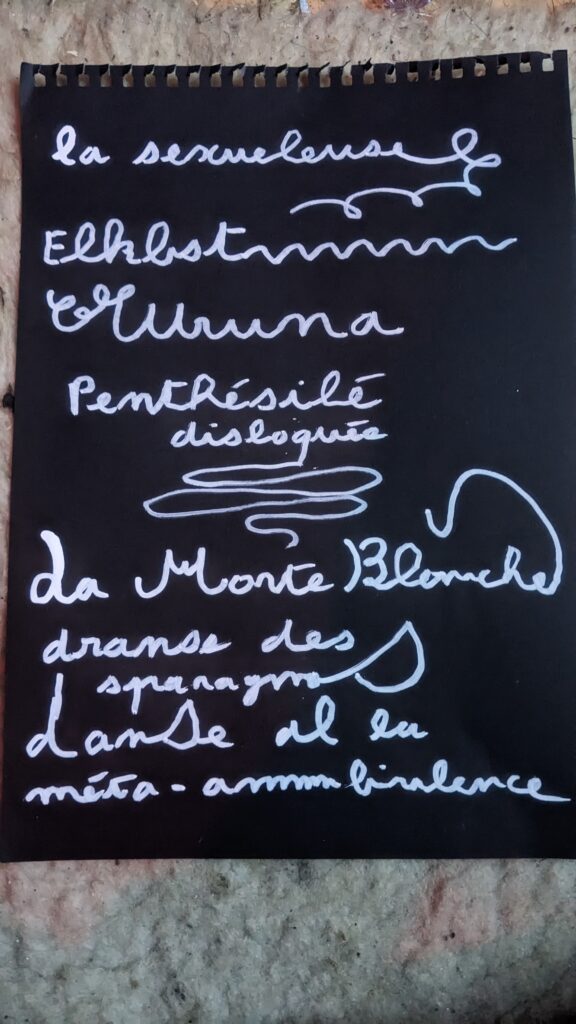 la sexueleuse
Elkbst
Penthésilé
disloqués
La Morte Blanche
dranse des
sparagmo
danse al la
méta-ammmbirulence